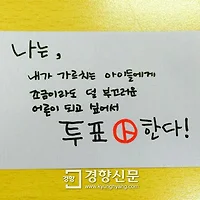 나는,
내가 가르치는 아이들에게
조금이라도 덜 부끄러운
어른이 되고 싶어서
투표 한다!
경향 경향신문
www.kyunghyang.com